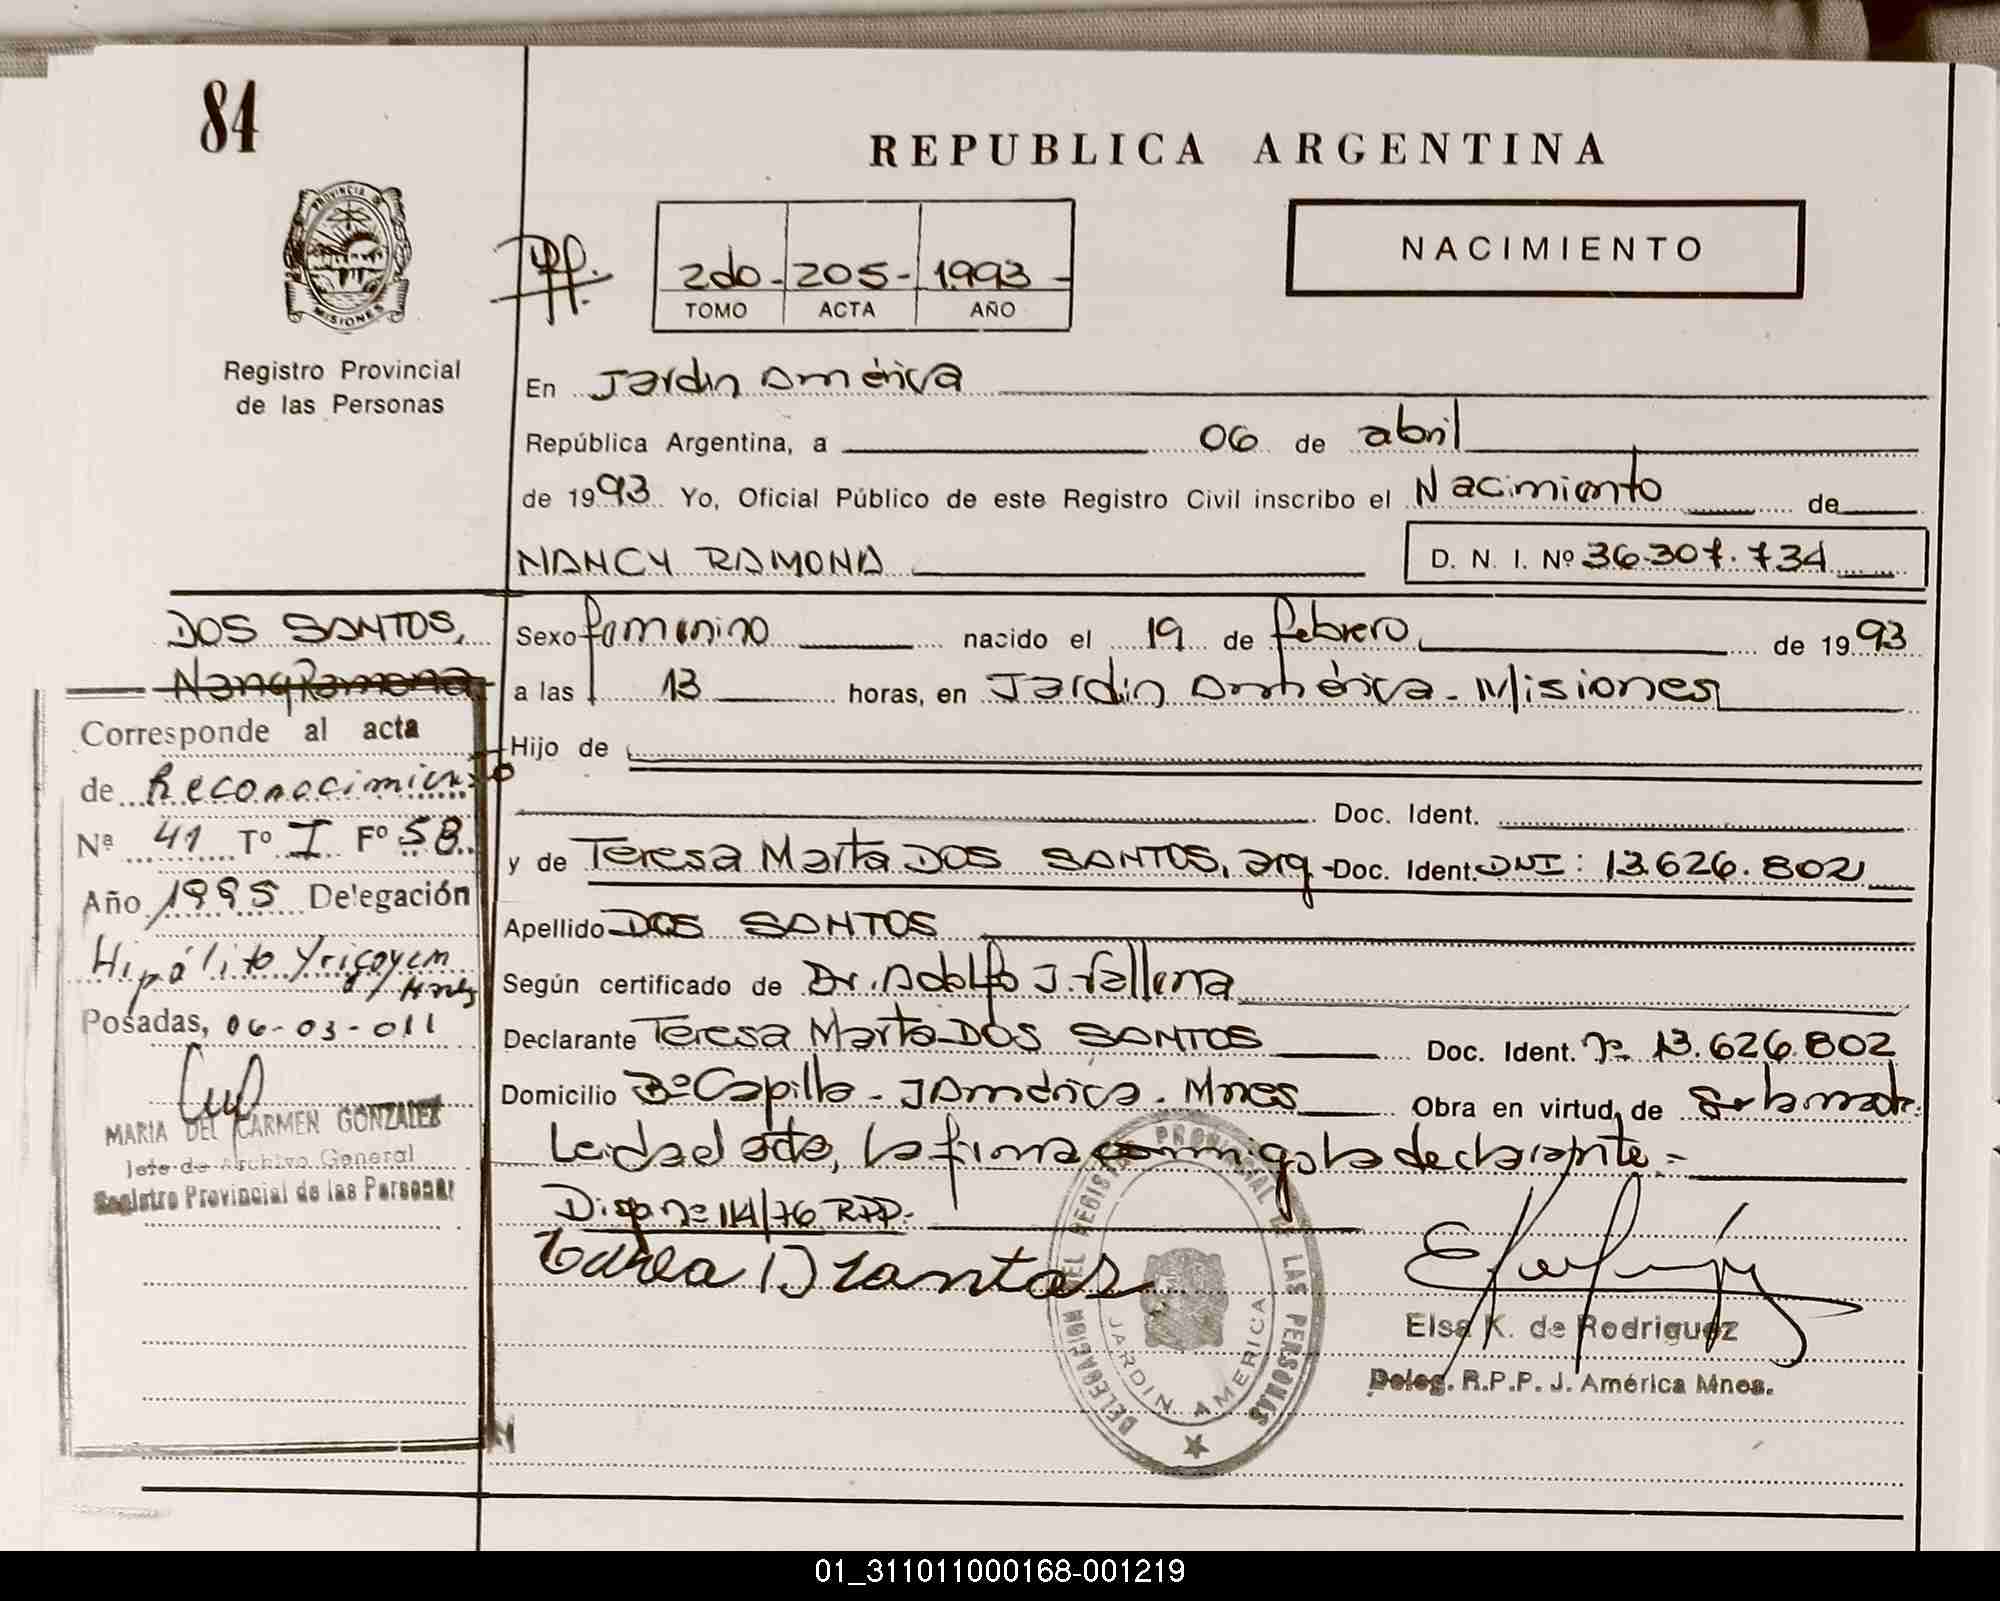 84
REPUBLICA ARGENTINA
PROVINCIA D
MISIONES
NACIMIENTO
2do - 205 - 1993 -
TOMO ACTA AÑO
Registro Provincial
de las Personas
En Jardin América
República Argentina, a 06 de abril
de 1993 Yo, Oficial Público de este Registro Civil inscribo el Nacimiento de
NANCY RAMONA D. N. I. Nº 36.307.734
DOS SANTOS,
Nancy Ramona
Sexo femenino nacido el 19 de febrero de 1993
a las 13 horas, en Jardin América - Misiones
Hijo de
Doc. Ident.
y de Teresa Marta DOS SANTOS, arg - Doc. Ident. DNI: 13.626.802
Apellido DOS SANTOS
Según certificado de Dr. Adolfo J.
Declarante Teresa Marta DOS SANTOS Doc. Ident. Nº 13.626.802
Domicilio Bº Capilla - J América - Mnes Obra en virtud de
Leida el acta, la firma conmigo la declarante.=
Disp. nº 114/76 RPP.-
Corresponde al acta
de Reconocimiento
Nª 41 Tº I Fº 58
Año 1995 Delegación
Hipólito Yrigoyen
Mnes
Posadas, 06-03-011
MARIA DEL CARMEN GONZALEZ
Jefe de Archivo General
Registro Provincial de las Personas
DELEGACION DEL REGISTRO PROVINCIAL DE LAS PERSONAS
JARDIN AMERICA
Elsa K. de Rodriguez
Deleg. R.P.P. J. América Mnes.
01_311011000168-001219